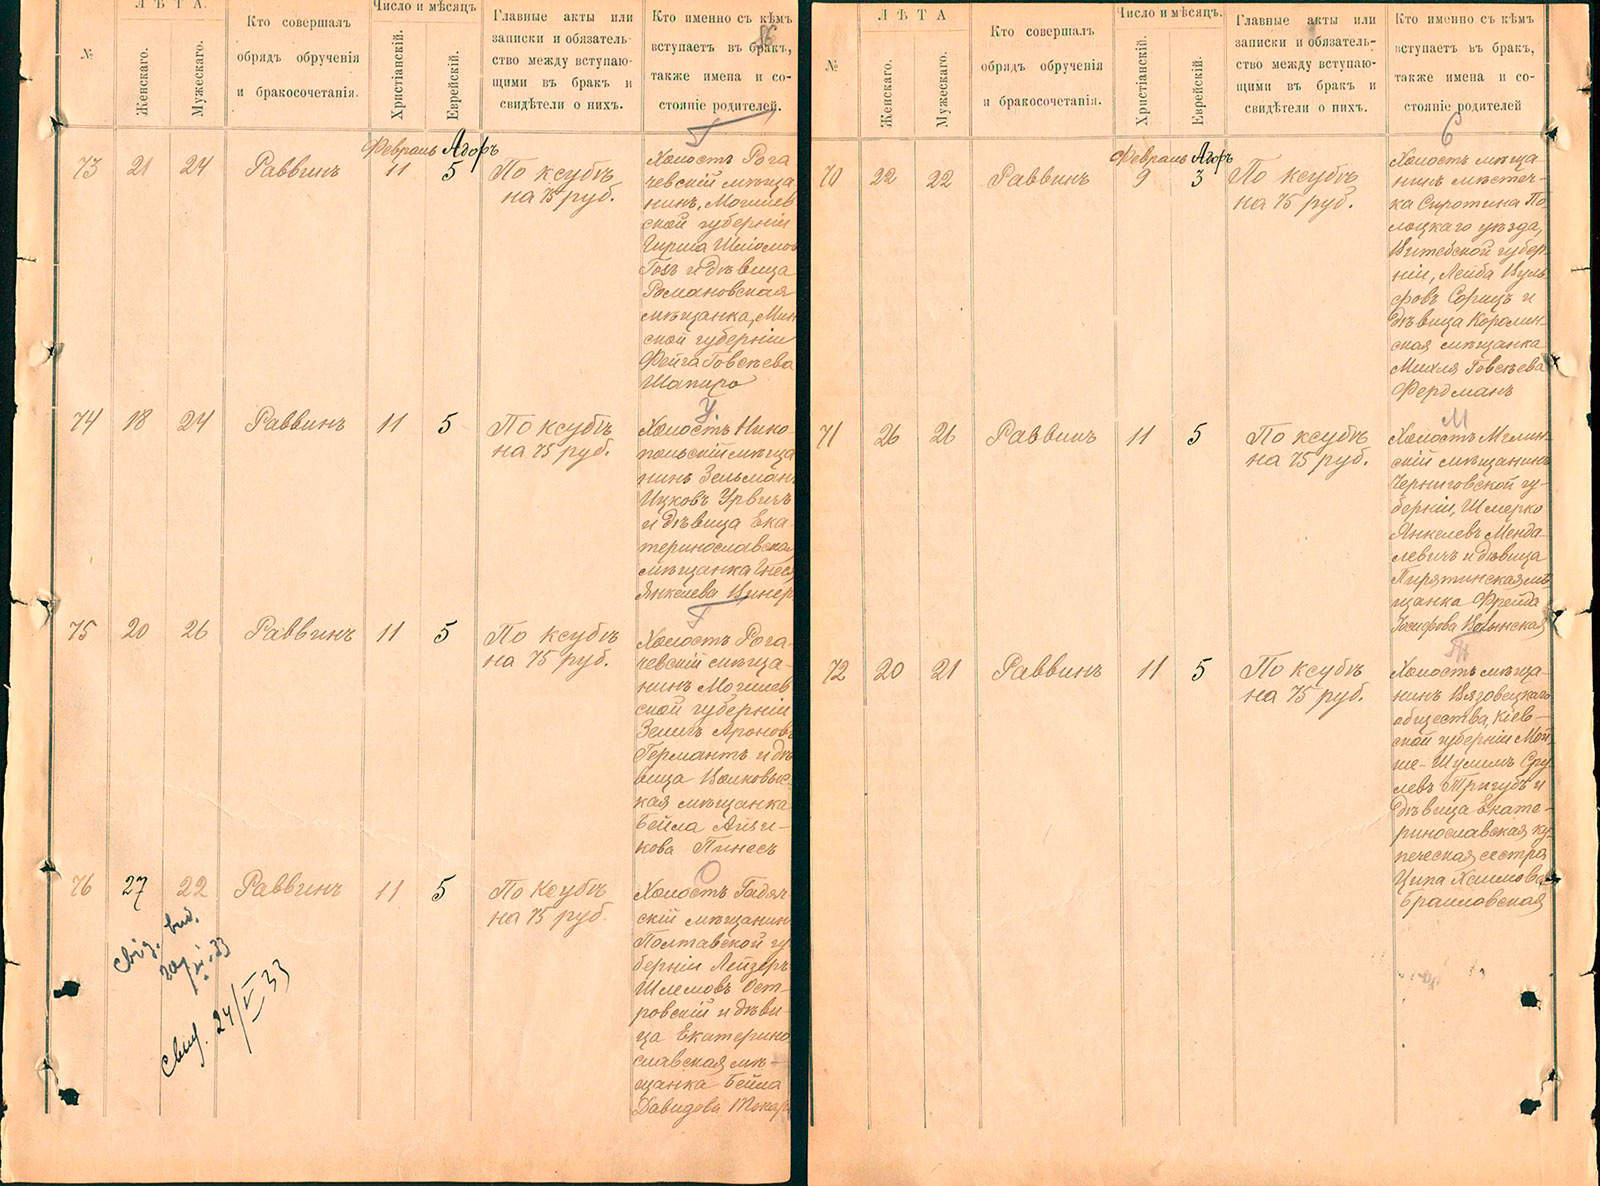 №
ЛѢТА.
Женскаго.
Мужескаго.
Кто совершалъ
обрядъ обрученія
и бракосочетанія.
Число и мѣсяцъ.
Христіанскій.
Еврейскій.
Главные акты или
записки и обязатель-
ство между вступаю-
щими въ бракъ и
свидѣтели о нихъ.
Кто именно съ кѣмъ
вступаетъ въ бракъ,
также имена и со-
стояніе родителей.
86
Г
Февраль Адоръ
73 21 24 Раввинъ 11 5 По ксубѣ
на 75 руб.
Холостъ Рога
чевскій мѣща
нинъ, Могилев
ской губерніи
Гирша Шліомов
Гозъ и дѣвица
Романовская
мѣщанка, Мин
ской губерніи
Фейга Говсѣева
Шапиро
У.
74 18 24 Раввинъ 11 5 По ксубѣ
на 75 руб.
Холостъ Нико
польскій мѣща
нинъ Зельман
Ицковъ Урвичъ
и дѣвица Ека-
теринославска
мѣщанка Гнеся
Янкелева Винер
Г
75 20 26 Раввинъ 11 5 По ксубѣ
на 75 руб.
Холостъ Рога-
чевскій мѣща-
нинъ Могилев
ской губерніи
Зелигъ Ароновъ
Германтъ и дѣ
вица Волковыс-
кая мѣщанка
Бейла Айзи-
кова Пинесъ
О
76 27 22 Раввинъ 11 5 По ксубѣ
на 75 руб.
Холостъ Гадяч
скій мѣщанин
Полтавской гу
берніи Лейзеръ
Шлемовъ Ост-
ровскій и дѣви-
ца Екатерино
славская мѣ-
щанка Бейла
Давидова Токар
свид. 24/V 33
№
ЛѢТА
Женскаго.
Мужескаго.
Кто совершалъ
обрядъ обрученія
и бракосочетанія.
Число и мѣсяцъ.
Христіанскій.
Еврейскій.
Главные акты или
записки и обязатель-
ство между вступаю-
щими въ бракъ и
свидѣтели о нихъ.
Кто именно съ кѣмъ
вступаетъ въ бракъ,
также имена и со-
стояніе родителей
Февраль Адоръ
70 22 22 Раввинъ 9 3 По ксубѣ
на 75 руб.
Холостъ мѣща
нинъ мѣстеч-
ка Сиротина По
лоцкаго уѣзда,
Витебской губер
ніи, Лейба Вуль
фовъ Сорицъ и
дѣвица Королин-
ская мѣщанка
Михля Говсѣева
Фердманъ
М
71 26 26 Раввинъ 11 5 По ксубѣ
на 75 руб.
Холостъ Мглин-
скій мѣщанинъ
Черниговской гу-
берніи, Шмерко
Янкелевъ Менда-
левичъ и дѣвица
Пирятинская мѣ
щанка Фрейда
Іосифова Волынская
72 20 21 Раввинъ 11 5 По ксубѣ
на 75 руб.
Холостъ мѣща-
нинъ Вязовецкаго
общества, Кіев-
ской губерніи Мой-
ше-Шулимъ Сру-
левъ Тригубъ и
дѣвица Екате-
ринославская ку-
печеская сестра
Ципа Хаимова
Браиловская